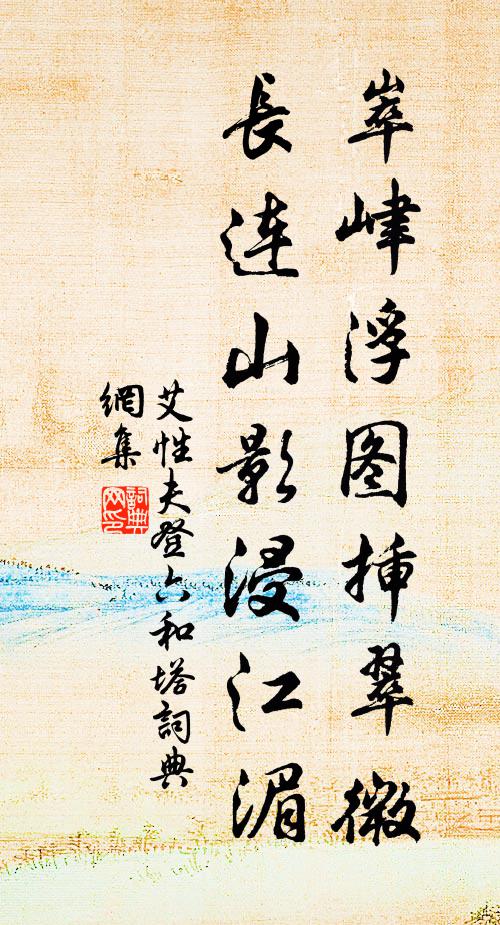 崒峍浮图挿翠微
長連山影浸江湄
艾性夫登六和塔詞典
網集
詞典
网印